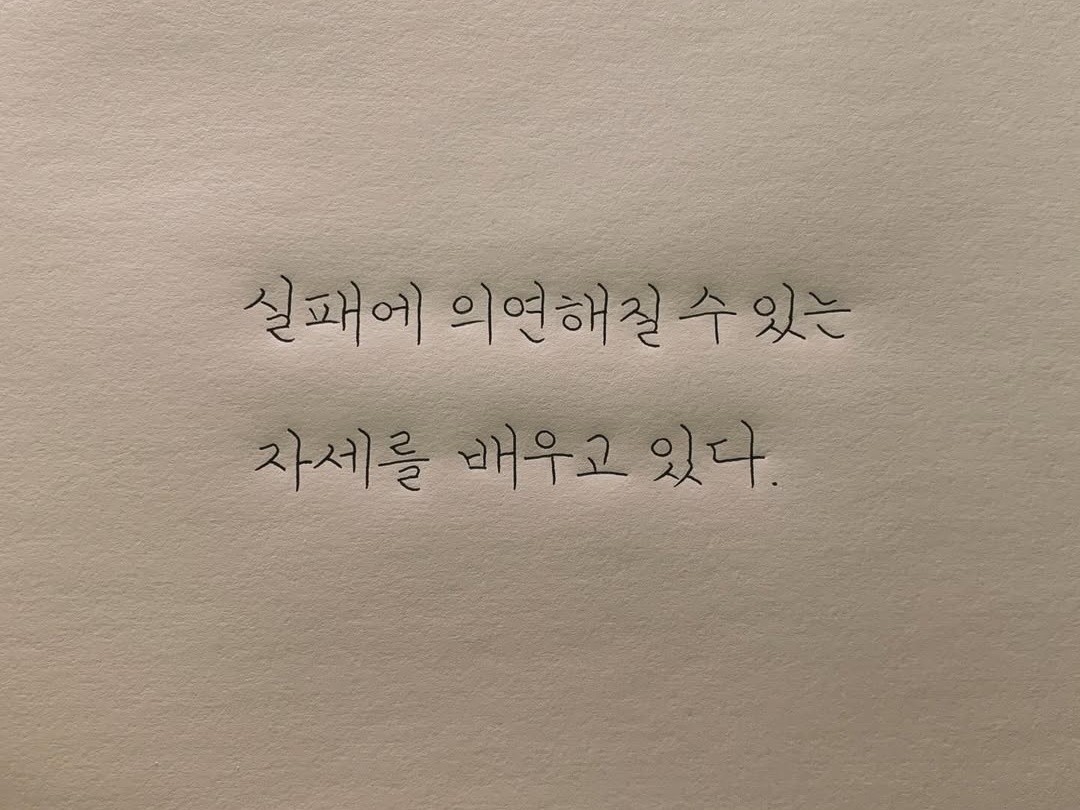 실패에 의연해질 수 있는
자세를 배우고 있다.